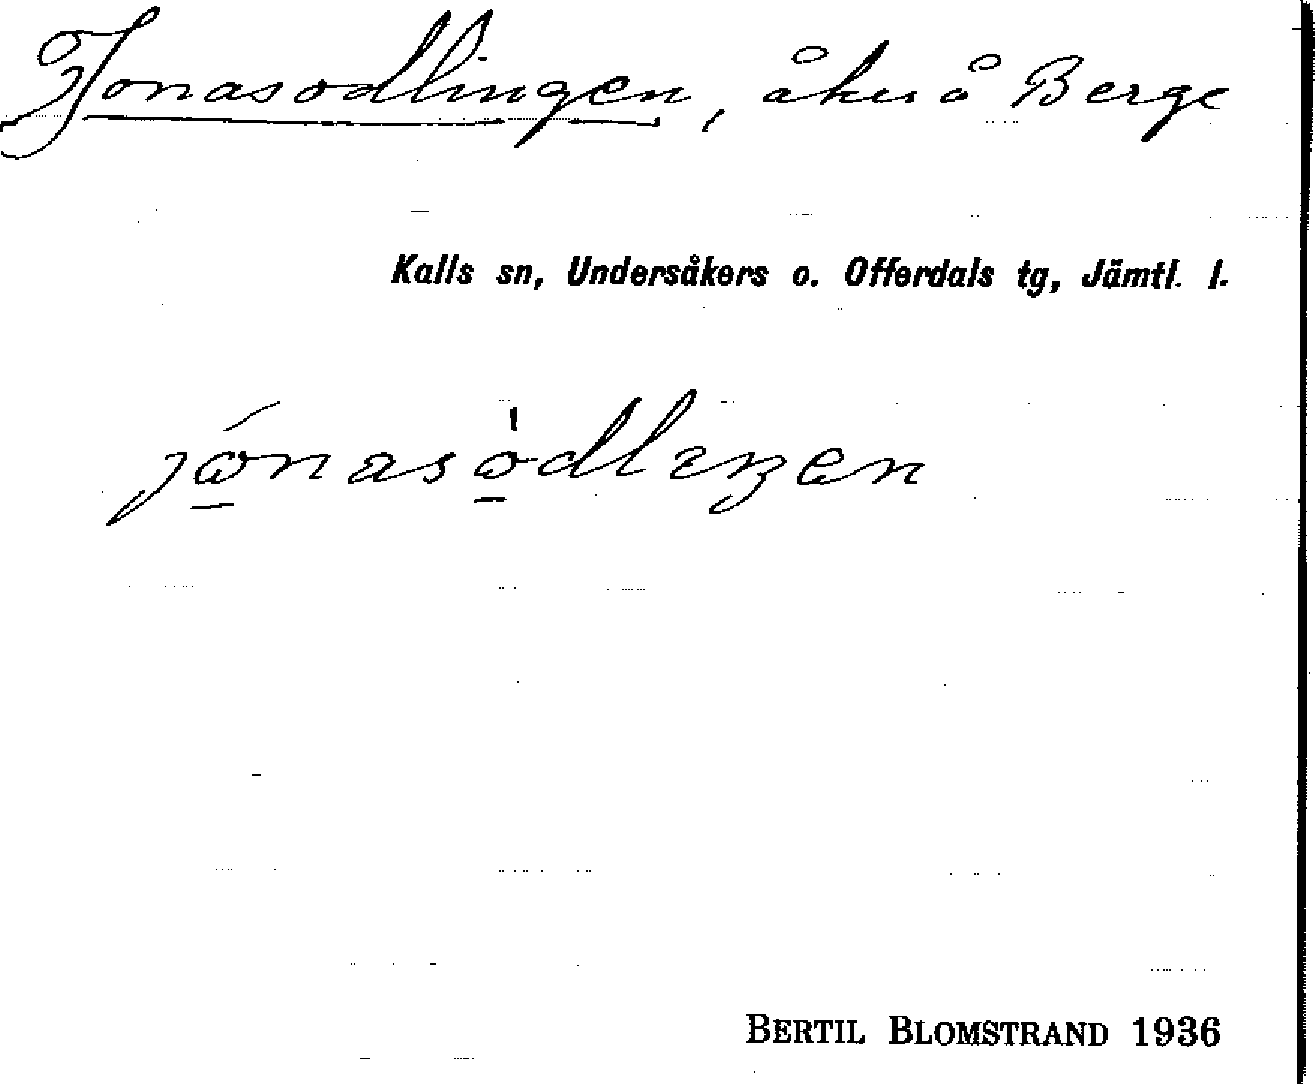 Jonasodlingen, åker å Berge
Kalls sn, Undersåkers o. Offerdals tg, Jämtl. l.
BERTIL BLOMSTRAND 1936